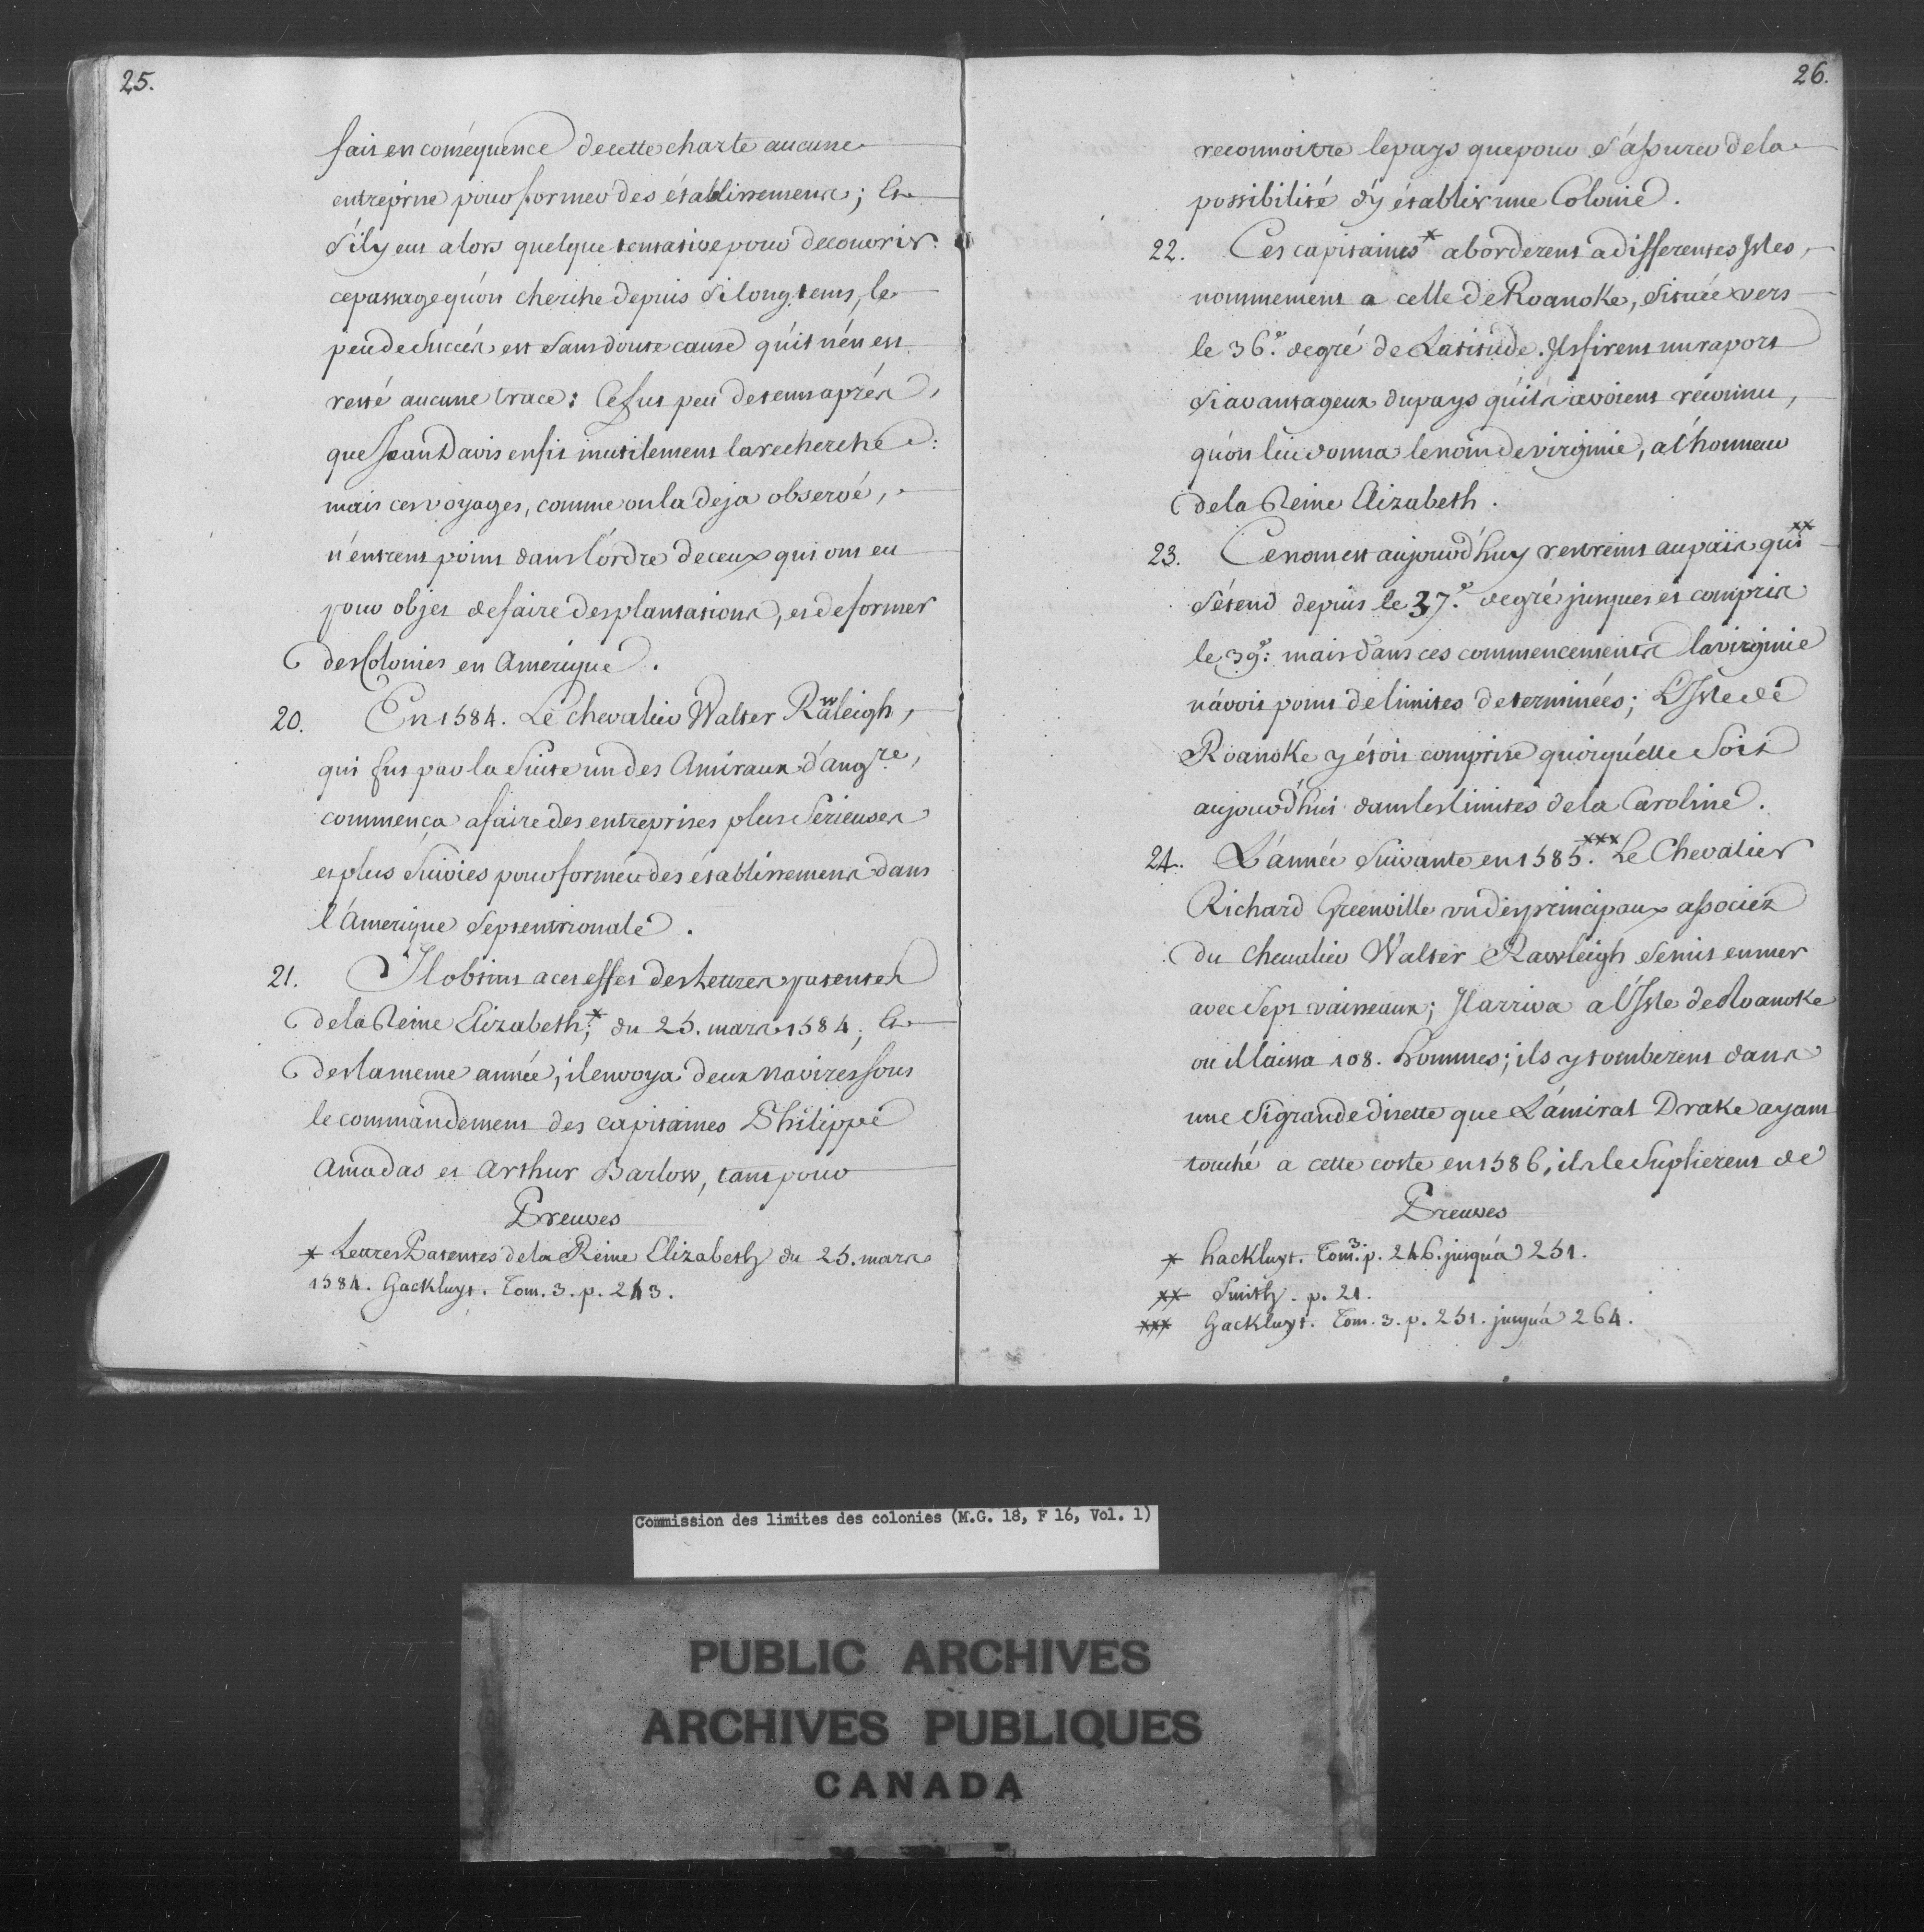 25.
fait en conséquence de cette charte aucune
entreprise pour former des établissemens; Et
s'il y eut alors quelque tentative pour decouvrir
ce passage qu'on cherche depuis si longtems, le
peu de succès est sans doute cause qu'il n'en est
resté aucune trace: Ce fut peu de tems après,
que Jean Davis en fit inutilement la recherche:
mais ces voyages, comme on la deja observé,
n'entrent point dans l'ordre de ceux qui ont eu
pour objet de faire des plantations, et de former
des Colonies en Amerique.
20. En 1584. Le chevalier Walter Rawleigh,
qui fut par la Suite un des Amiraux d'angre,
commença a faire des entreprises plus Serieuses
et plus Suivies pour former des établissemens dans
l'Amerique Septentrionale.
21. Il obtint a cet effet des Lettres patentes
de la Reine Elizabeth;* du 25. mars 1584; Et
des la meme année, il envoya deux navires sous
le commandement des capitaines Philippe
Amadas et Arthur Barlow, tant pour
Preuves
* Lettres Patentes de la Reine Elizabeth du 25. mars
1584. Hackluyt. Tom. 3. p. 243.
26.
reconnoitre le pays que pour s'assurer de la
possibilité d'y établir une Colonie.
22. Ces capitaines* aborderent a differentes Isles,
nommement a celle de Roanoke, située vers
le 36.e degré de Latitude. Ils firent un raport
si avantageux du pays qu'ils avoient réconnu,
qu'on lui donna le nom de virginie, a l'honneur
de la Reine Elizabeth.
23. Ce nom est aujourd'huy restreint au païs qui xx
s'étend depuis le 37.e degré jusques et compris
le 39.e: mais dans ces commencemens la virginie
n'avoit point de limites determinées; L'Isle de
Roanoke y étoit comprise quoiqu'elle Soit
aujourd'hui dans les limites de la Caroline.
24. L'année Suivante en 1585.xxx Le Chevalier
Richard Greenville un des principaux associez
du chevalier Walter Rawleigh se mit en mer
avec Sept vaisseaux; Il arriva a l'Isle de Roanoke
ou il laissa 108. hommes; ils y tomberent dans
une si grande disette que L'amiral Drake ayant
touché a cette coste en 1586, ils le suplierent de
Preuves
* hackluyt. Tom. 3. p. 246. jusqu'a 251.
xx Smith. p. 21.
xxx Hackluyt. Tom. 3. p. 251. jusqu'a 264.
Commission des limites des colonies (M.G. 18, F 16, Vol. 1)
PUBLIC ARCHIVES
ARCHIVES PUBLIQUES
CANADA